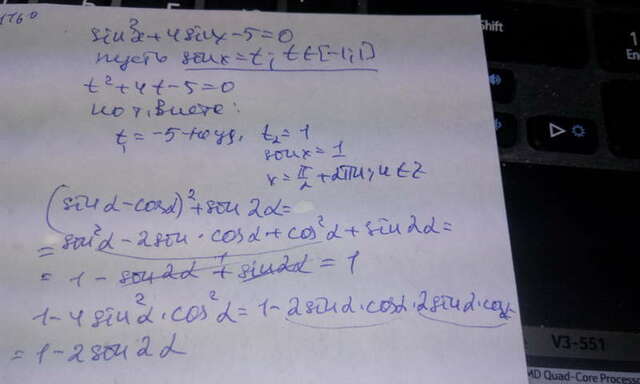 1160
sin²x+4sinx-5=0
пусть sinx=t; t∈[-1;1]
t²+4t-5=0
по т. Виета:
t₁=-5-неуд. t₂=1
sinx=1
x=π/2+2πn, n∈Z
(sinα-cosα)²+sin2α=
=sin²α-2sin·cosα+cos²α+sin2α=
=1-sin2α+sin2α=1
1-4sin²α·cos²α=1-2sinα·cosα·2sinα·cosα
=1-2sin2α
Shift
1
En
V3-551
MD Quad-Core Process